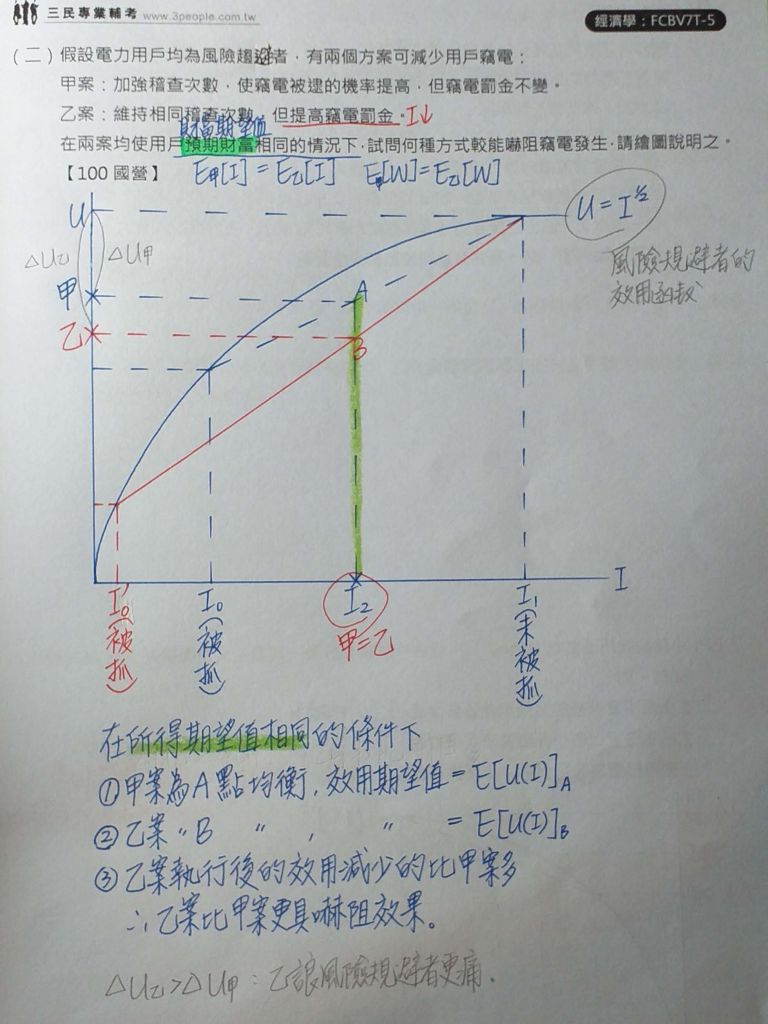 三民專業輔考 www.3people.com.tw
經濟學：FCBV7T-5
(二) 假設電力用戶均為風險趨避者，有兩個方案可減少用戶竊電：
甲案：加強稽查次數，使竊電被逮的機率提高，但竊電罰金不變。
乙案：維持相同稽查次數，但提高竊電罰金。I↓
財富期望值
在兩案均使用戶預期財富相同的情況下，試問何種方式較能嚇阻竊電發生，請繪圖說明之。
【100 國營】 E甲[I] = E乙[I] E甲[W] = E乙[W]
U
U = I^½
ΔU乙 ΔU甲
風險規避者的
效用函数
甲
A
乙
B
I
I₀' I₀ I₂ I₁
(被抓) (被抓) 甲=乙 (未被抓)
在所得期望值相同的條件下
①甲案為A點均衡，效用期望值 = E[U(I)]A
②乙案〃B 〃 ， 〃 = E[U(I)]B
③乙案執行後的效用減少的比甲案多
∴乙案比甲案更具嚇阻效果。
ΔU乙>ΔU甲：乙讓風險規避者更痛.